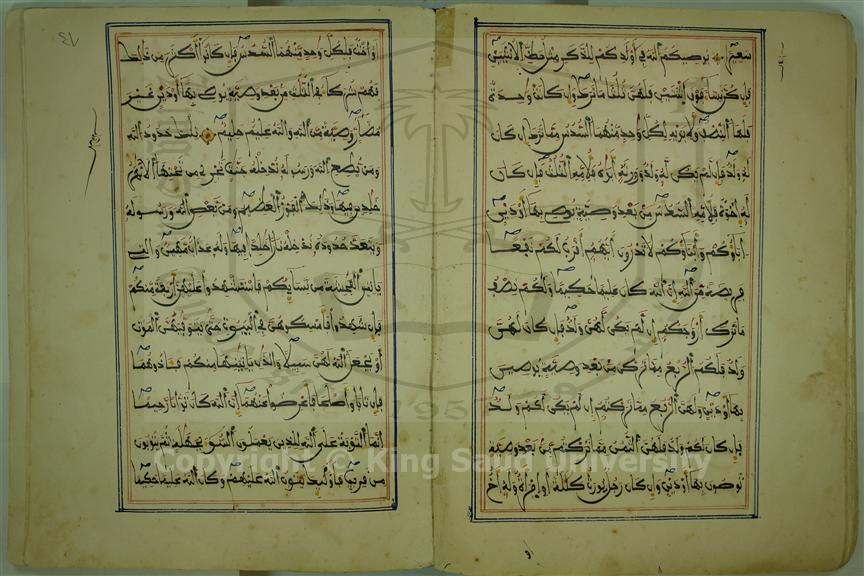 سعيرا يوصيكم الله في أولدكم للذكر مثل حظ الأنثيين
فإن كن نساء فوق اثنتين فلهن ثلثا ما ترك وإن كانت وحدة
فلها النصف ولأبويه لكل وحد منهما السدس مما ترك إن كان
له ولد فإن لم يكن له ولد وورثه أبوه فلأمه الثلث فإن كان
له إخوة فلأمه السدس من بعد وصية يوصي بها أو دين
اباؤكم وأبناؤكم لا تدرون أيهم أقرب لكم نفعا
فريضة من الله إن الله كان عليما حكيما ولكم نصف
ما ترك أزوجكم إن لم يكن لهن ولد فإن كان لهن
ولد فلكم الربع مما تركن من بعد وصية يوصين
بها أو دين ولهن الربع مما تركتم إن لم يكن لكم ولد
فإن كان لكم ولد فلهن الثمن مما تركتم من بعد وصية
توصون بها أو دين وإن كان رجل يورث كللة أو امرأة وله أخ
أو أخت فلكل وحد منهما السدس فإن كانوا أكثر من ذلك
فهم شركاء في الثلث من بعد وصية يوصي بها أو دين غير
مضار وصية من الله والله عليم حليم تلك حدود الله
ومن يطع الله ورسوله ندخله جنت تجري من تحتها الأنهر
خلدين فيها وذلك الفوز العظيم ومن يعص الله ورسوله
ويتعد حدوده ندخله نارا خلدا فيها وله عذاب مهين والتي
ياتين الفحشة من نسائكم فاستشهدوا عليهن أربعة منكم
فإن شهدوا فأمسكوهن في البيوت حتى يتوفيهن الموت
أو يجعل الله لهن سبيلا والذن ياتينها منكم فئاذوهما
فإن تابا وأصلحا فأعرضوا عنهما إن الله كان توابا رحيما
إنما التوبة على الله للذين يعملون السوء بجهلة ثم يتوبون
من قريب فأولئك يتوب الله عليهم وكان الله عليما حكيما
1957
Copyright © King Saud University